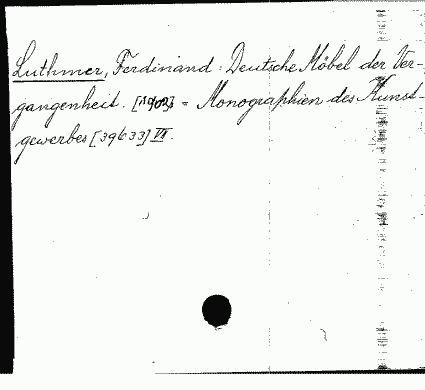 Luthmer, Ferdinand: Deutsche Möbel der Ver-
gangenheit. [1903] = Monographien des Kunst-
gewerbes [39633] VII.